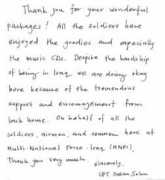 Thank you for your wonderful
packages! All the soldiers have
enjoyed the goodies and especially
the music CDs. Despite the hardship
of being in Iraq, we are doing okay
here because of the tremendous
support and encouragement from
back home. On behalf of all the
soldiers, airmen, and seamen here at
Multi-National Force-Iraq (MNFI),
Thank you very much.
Sincerely,